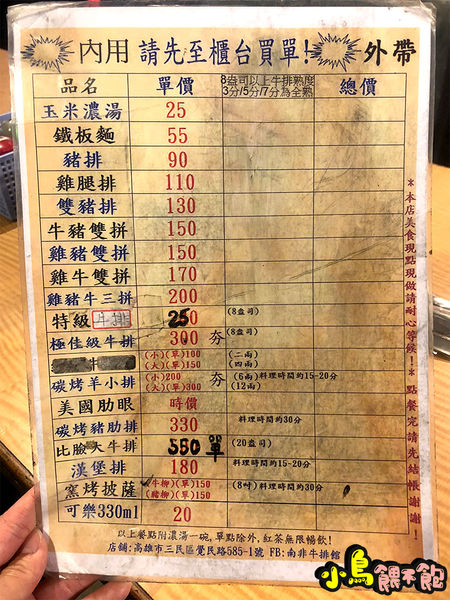 內用 請先至櫃台買單! 外帶
品名 單價 8盎司以上牛排熟度 3分/5分/7分為全熟 總價
玉米濃湯 25
鐵板麵 55
豬排 90
雞腿排 110
雙豬排 130
牛豬雙拼 150
雞豬雙拼 150
雞牛雙拼 170
雞豬牛三拼 200
特級牛排 250 (8盎司)
極佳級牛排 300 夯 (8盎司)
牛 (小)(單)100 (二兩)
(大)(單)150 (四兩)
碳烤羊小排 (小)200 夯 (6兩)料理時間約15-20分
(大)(單)300 (12兩)
美國肋眼 時價
碳烤豬肋排 330 料理時間約30分
比臉大牛排 550 單 (20盎司)
漢堡排 180 料理時間約15-20分
窯烤披薩 (牛柳)(單)150 (8吋)料理時間約30分
(豬柳)(單)150
可樂330ml 20
以上餐點附濃湯一碗,單點除外,紅茶無限暢飲!
店鋪:高雄市三民區覺民路585-1號 FB:南非牛排館
*本店美食現點現做請耐心等候!*點餐完請先結帳謝謝!
小鳥餵不飽